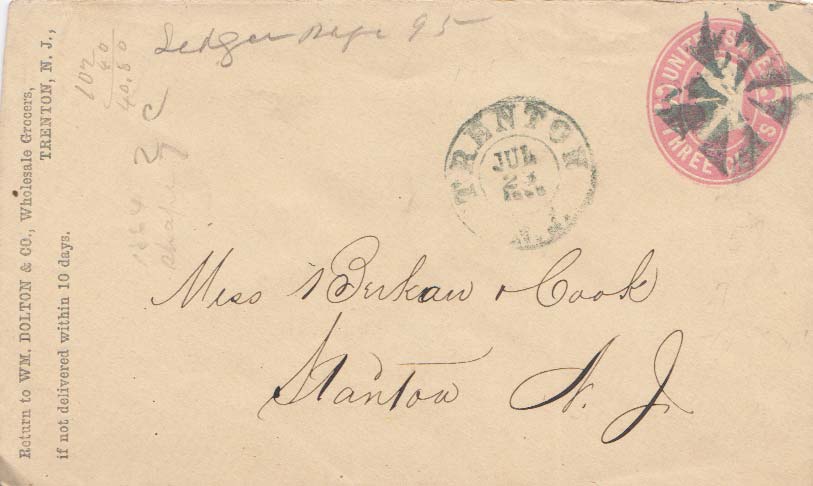 Return to WM. DOLTON & CO., Wholesale Grocers,
TRENTON, N. J.,
if not delivered within 10 days.
102
40
40.80
Ledger page 95
UNITED STATES
THREE CENTS
TRENTON
JUL
N.J.
Mess Berkaw & Cook
Stanton N. J.